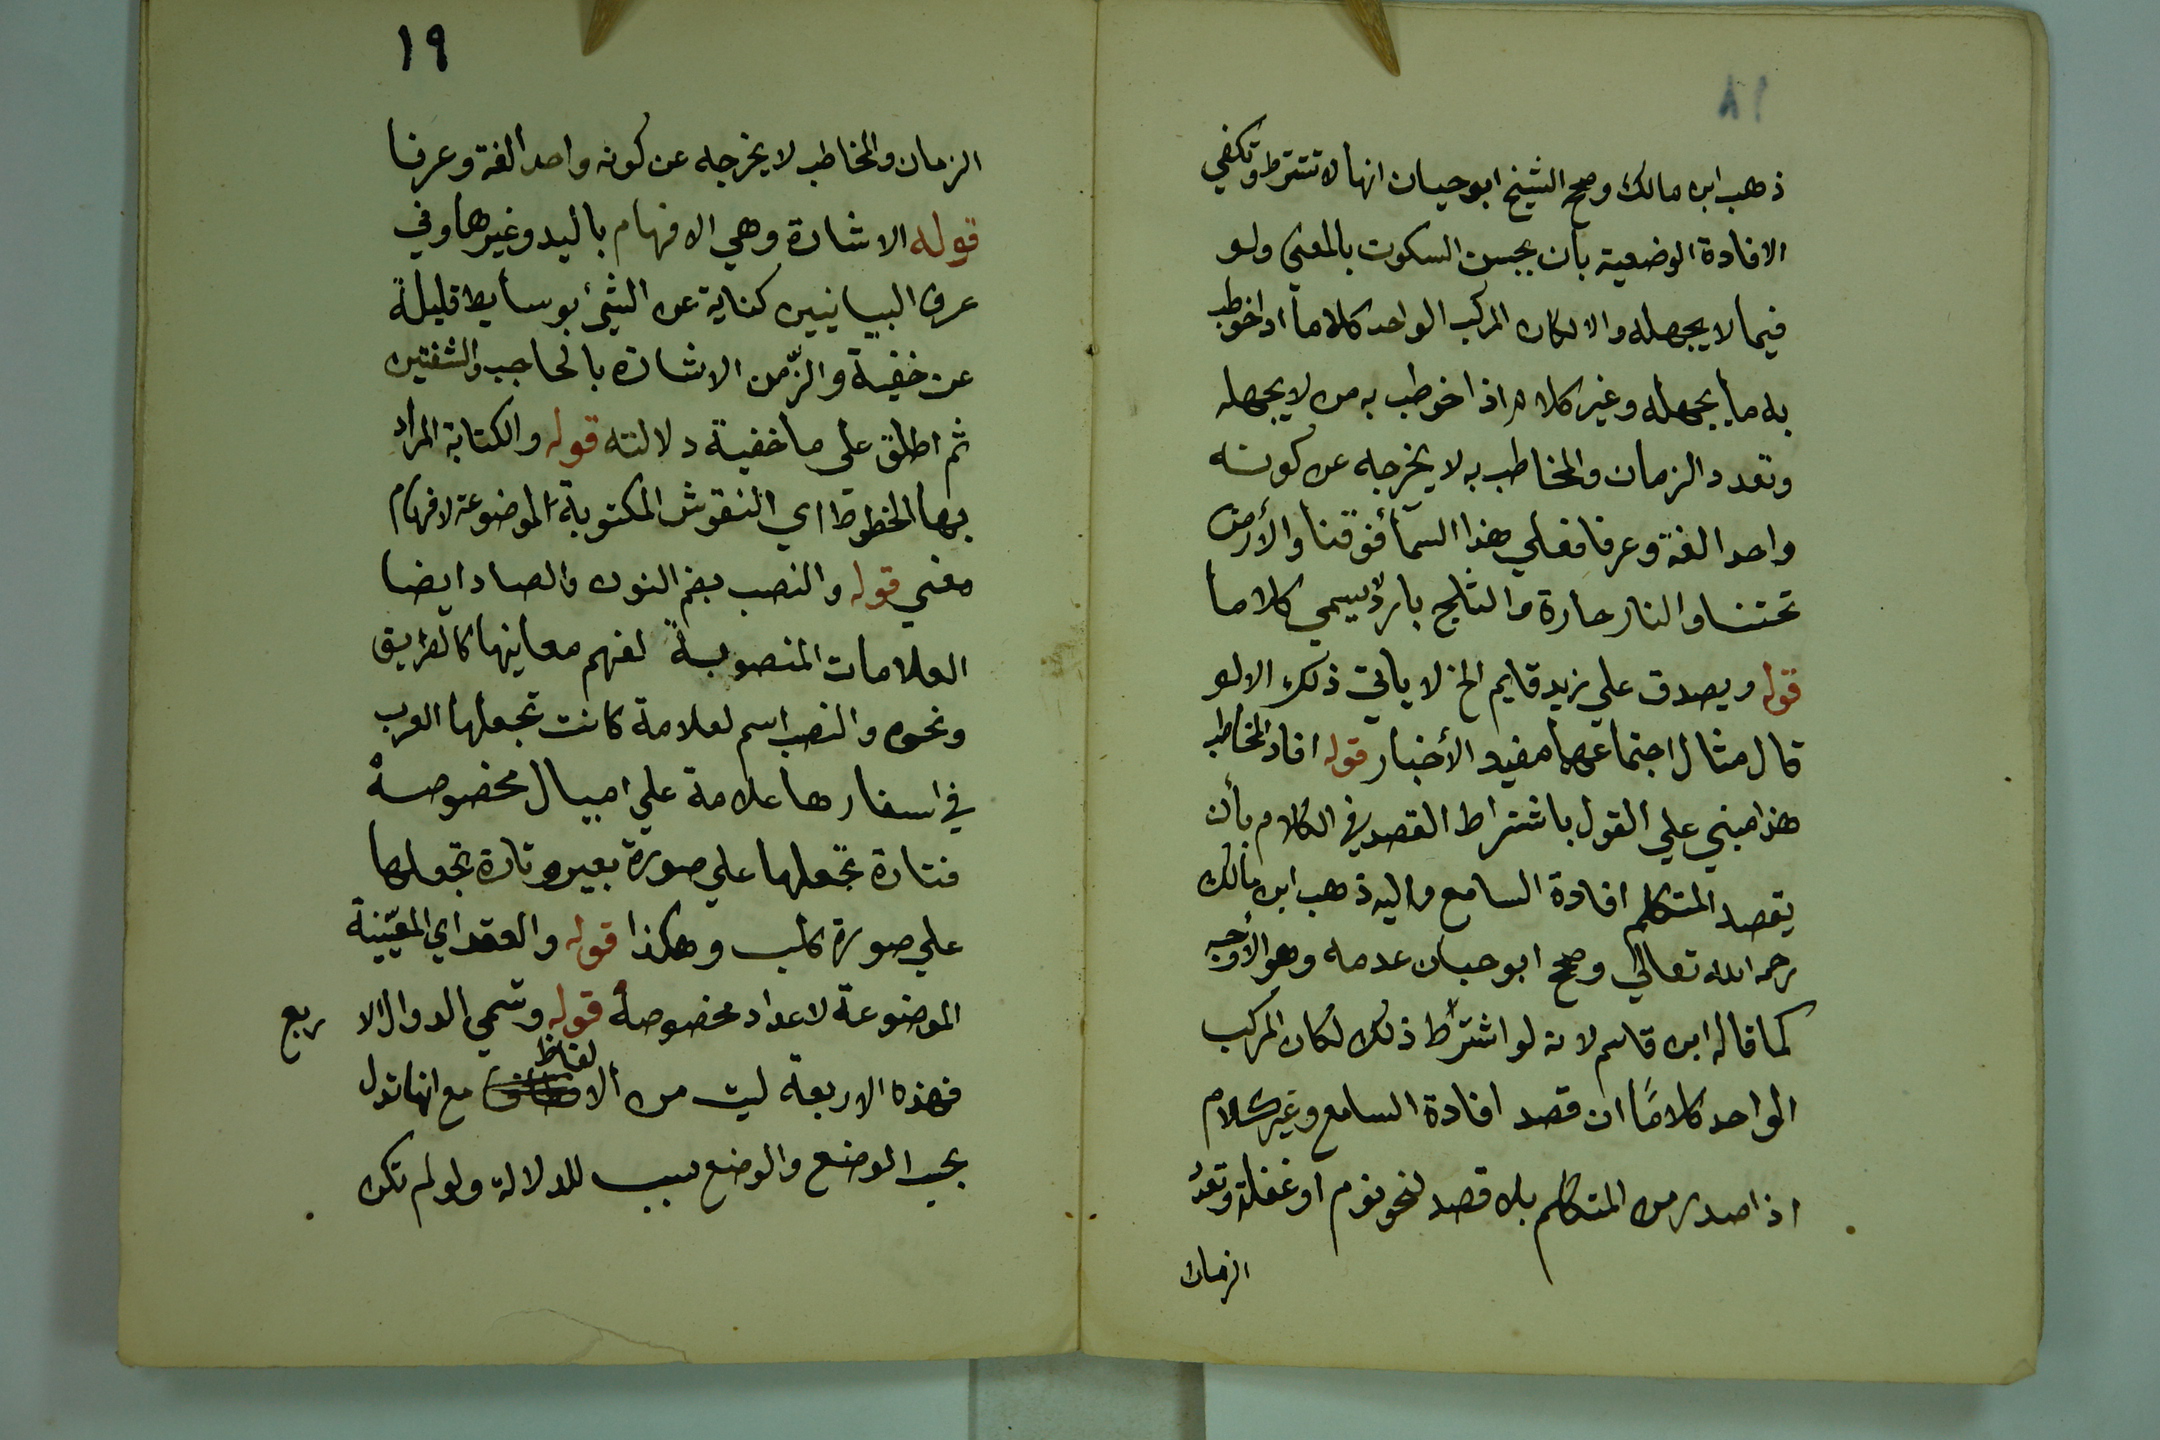 ١٨
ذهب ابن مالك وصحح الشيخ ابو حيان انها لا تشترط وتكفي
الافادة الوضعية بأن يحسن السكوت بالمعني ولو
فيما لا يجهله والا لكان المركب الواحد كلاما اذا خوطب
به من يجهله وغير كلام اذا خوطب به من لا يجهله
وتعدد الزمان والمخاطب به لا يخرجه عن كونه
واحدا لغة وعرفا فعلي هذا السمآ فوقنا والأرض
تحتنا والنار حارة والثلج بارد يسمي كلاما
قوله ويصدق علي زيد قايم الخ لا ياتي ذلك الا لو
قال مثال اجتماعهما مفيد الأخبار قوله افاد المخاطب
هذا مبني علي القول باشتراط القصد في الكلام بأن
يقصد المتكلم افادة السامع واليه ذهب ابن مالك
رحمه الله تعالي وصحح ابو حيان عدمه وهو الأوجه
كما قاله ابن قاسم لانه لو اشترط ذلك لكان المركب
الواحد كلامًا ان قصد افادة السامع وغير كلام
اذا صدر من المتكلم بلا قصد لنحو نوم او غفلة وتعدد
الزمان
١٩
الزمان والمخاطب لا يخرجه عن كونه واحدا لغة وعرفا
قوله الاشارة وهي الافهام باليد وغيرها وفي
عرف البيانيين كناية عن الشئ بوسايط قليلة
عن خفية والرّمز الاشارة بالحاجب والشفتين
ثم اطلق علي ما خفية دلالته قوله والكتابة المراد
بها الخطوط اي النقوش المكتوبة الموضوعة لافهام
معني قوله والنصب بضم النون والصاد ايضا
العلامات المنصوبة لفهم معاينها كالطريق
ونحوه والنصب اسم لعلامة كانت تجعلها العرب
في اسفارها علامة علي اميال مخصوصة
فتارة تجعلها علي صورة بعير وتارة تجعلها
علي صورة كلب وهكذا قوله والعقد اي المعّينة
الموضوعة لاعداد مخصوصة قوله وتسمي الدوال الا ربع
فهذه الاربعة ليت من الا لفاظ مع انها تدل
بحسب الوضع والوضع سبب للدلالة ولو لم تكن